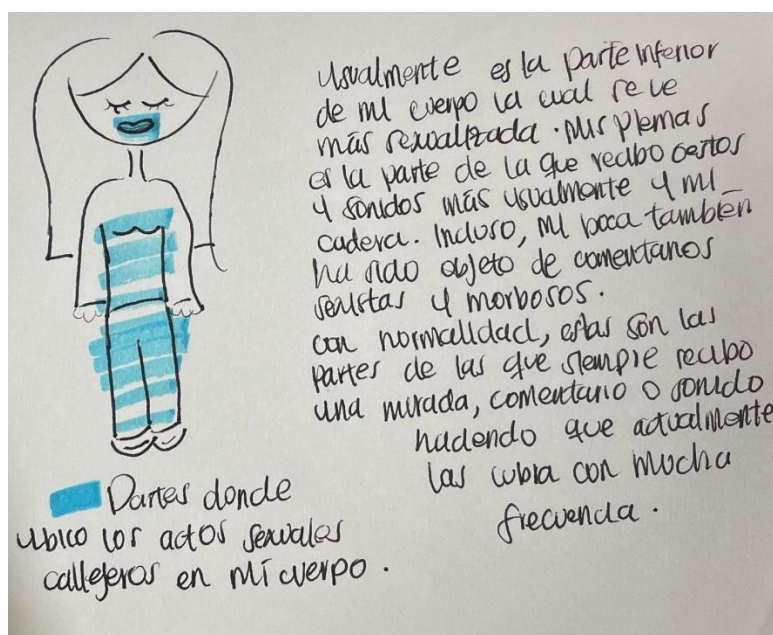 Usualmente es la parte inferior
de mi cuerpo la cual se ve
más sexualizada. Mis piernas
es la parte de la que recibo gestos
y sonidos más usualmente y mi
cadera. Incluso, mi boca también
ha sido objeto de comentarios
sexistas y morbosos.
con normalidad, estas son las
partes de las que siempre recibo
una mirada, comentario o sonido
haciendo que actualmente
las cubra con mucha
frecuencia.
Partes donde
ubico los actos sexuales
callejeros en mi cuerpo.